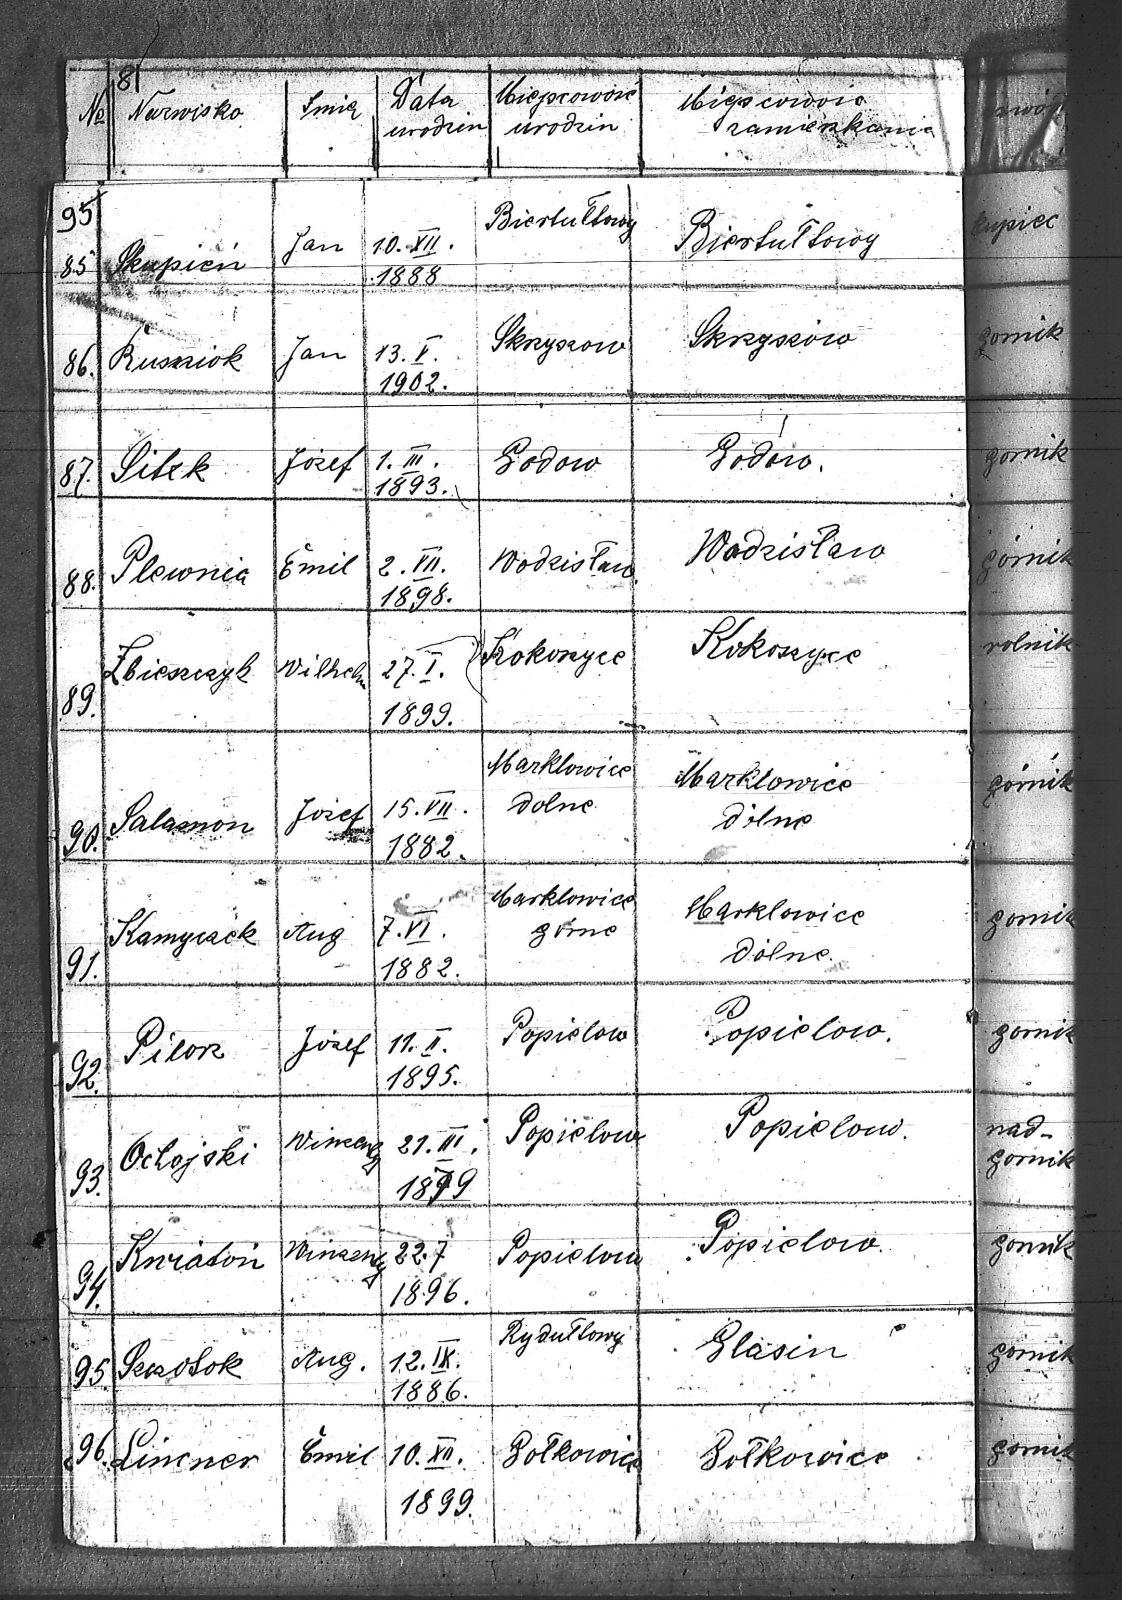 81
№ Nazwisko Imię Data urodzin Miejscowość urodzin Miejscowość zamieszkania
95
85 Skupień Jan 10. XII. 1888 Biertułtowy Biertułtowy kupiec
86. Ruśniok Jan 13. V. 1902. Skrzyszow Skrzyszów gornik
87. Sitek Józef 1. III. 1893. Godow Godów. gornik
88. Plewnia Emil 2. VII. 1898. Wodzisław Wodzisław górnik
89. Zbieszczyk Wilhelm 27. I. 1899. Kokoszyce Kokoszyce rolnik
90. Salamon Józef 15. VII. 1882. Marklowice dolne Marklowice dólne górnik
91. Kamyczek Aug 7. VI. 1882. Marklowice górne Marklowice dólne. gornik
92. Pilorz Józef 11. II. 1895. Popielow Popielow. gornik
93. Ochojski Winzenty 21. III. 1899 Popielow Popielow. nad-gornik
94. Kwiatoń Winzenty 22.7 1896. Popielow Popielow. gornik
95. Szrotok Aug. 12. IX. 1886. Rydułtowy Glasin górnik
96. Linener Emil 10. XII. 1899. Gołkowice Gołkowice gornik